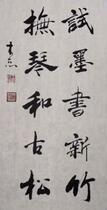 試墨書新竹
撫琴和古松